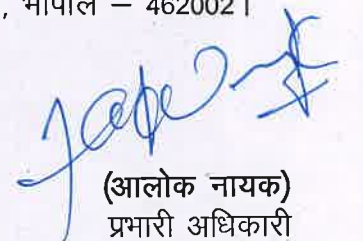 , भोपाल – 462002।
(आलोक नायक)
प्रभारी अधिकारी